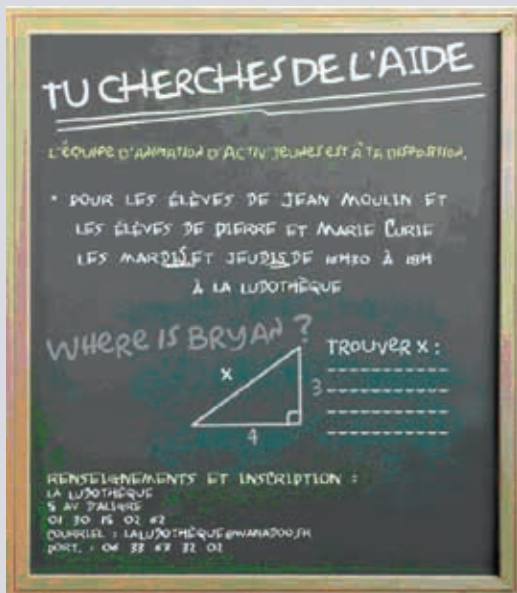 TU CHERCHES DE L'AIDE
L'ÉQUIPE D'ANIMATION D'ACTIV JEUNES EST À TA DISPOSITION.
• POUR LES ÉLÈVES DE JEAN MOULIN ET
LES ÉLÈVES DE PIERRE ET MARIE CURIE
LES MARDIS ET JEUDIS DE 16H30 À 18H
À LA LUDOTHÈQUE
WHERE IS BRYAN ?
TROUVER X :
X
3
4
RENSEIGNEMENTS ET INSCRIPTION :
LA LUDOTHÈQUE
5 AV D'ALIGRE
01 30 15 02 62
COURRIEL : LALUDOTHÈQUE@WANADOO.FR
PORT. : 06 33 67 32 02